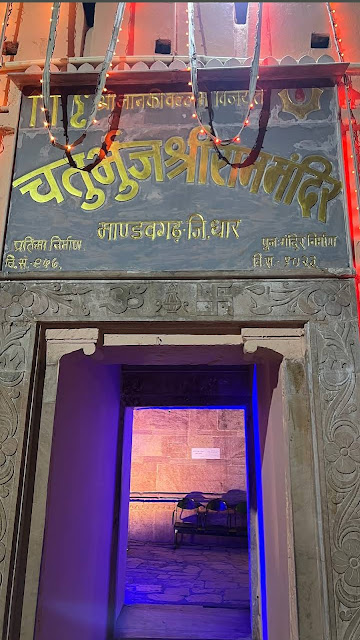 ॥ श्री जानकीवल्लभ विजयते
चतुर्भुज श्रीराम मंदिर
माण्डवगढ़-जि.धार
प्रतिमा निर्माण
वि.सं.-९५७.
पुनः मंदिर निर्माण
वि.स.